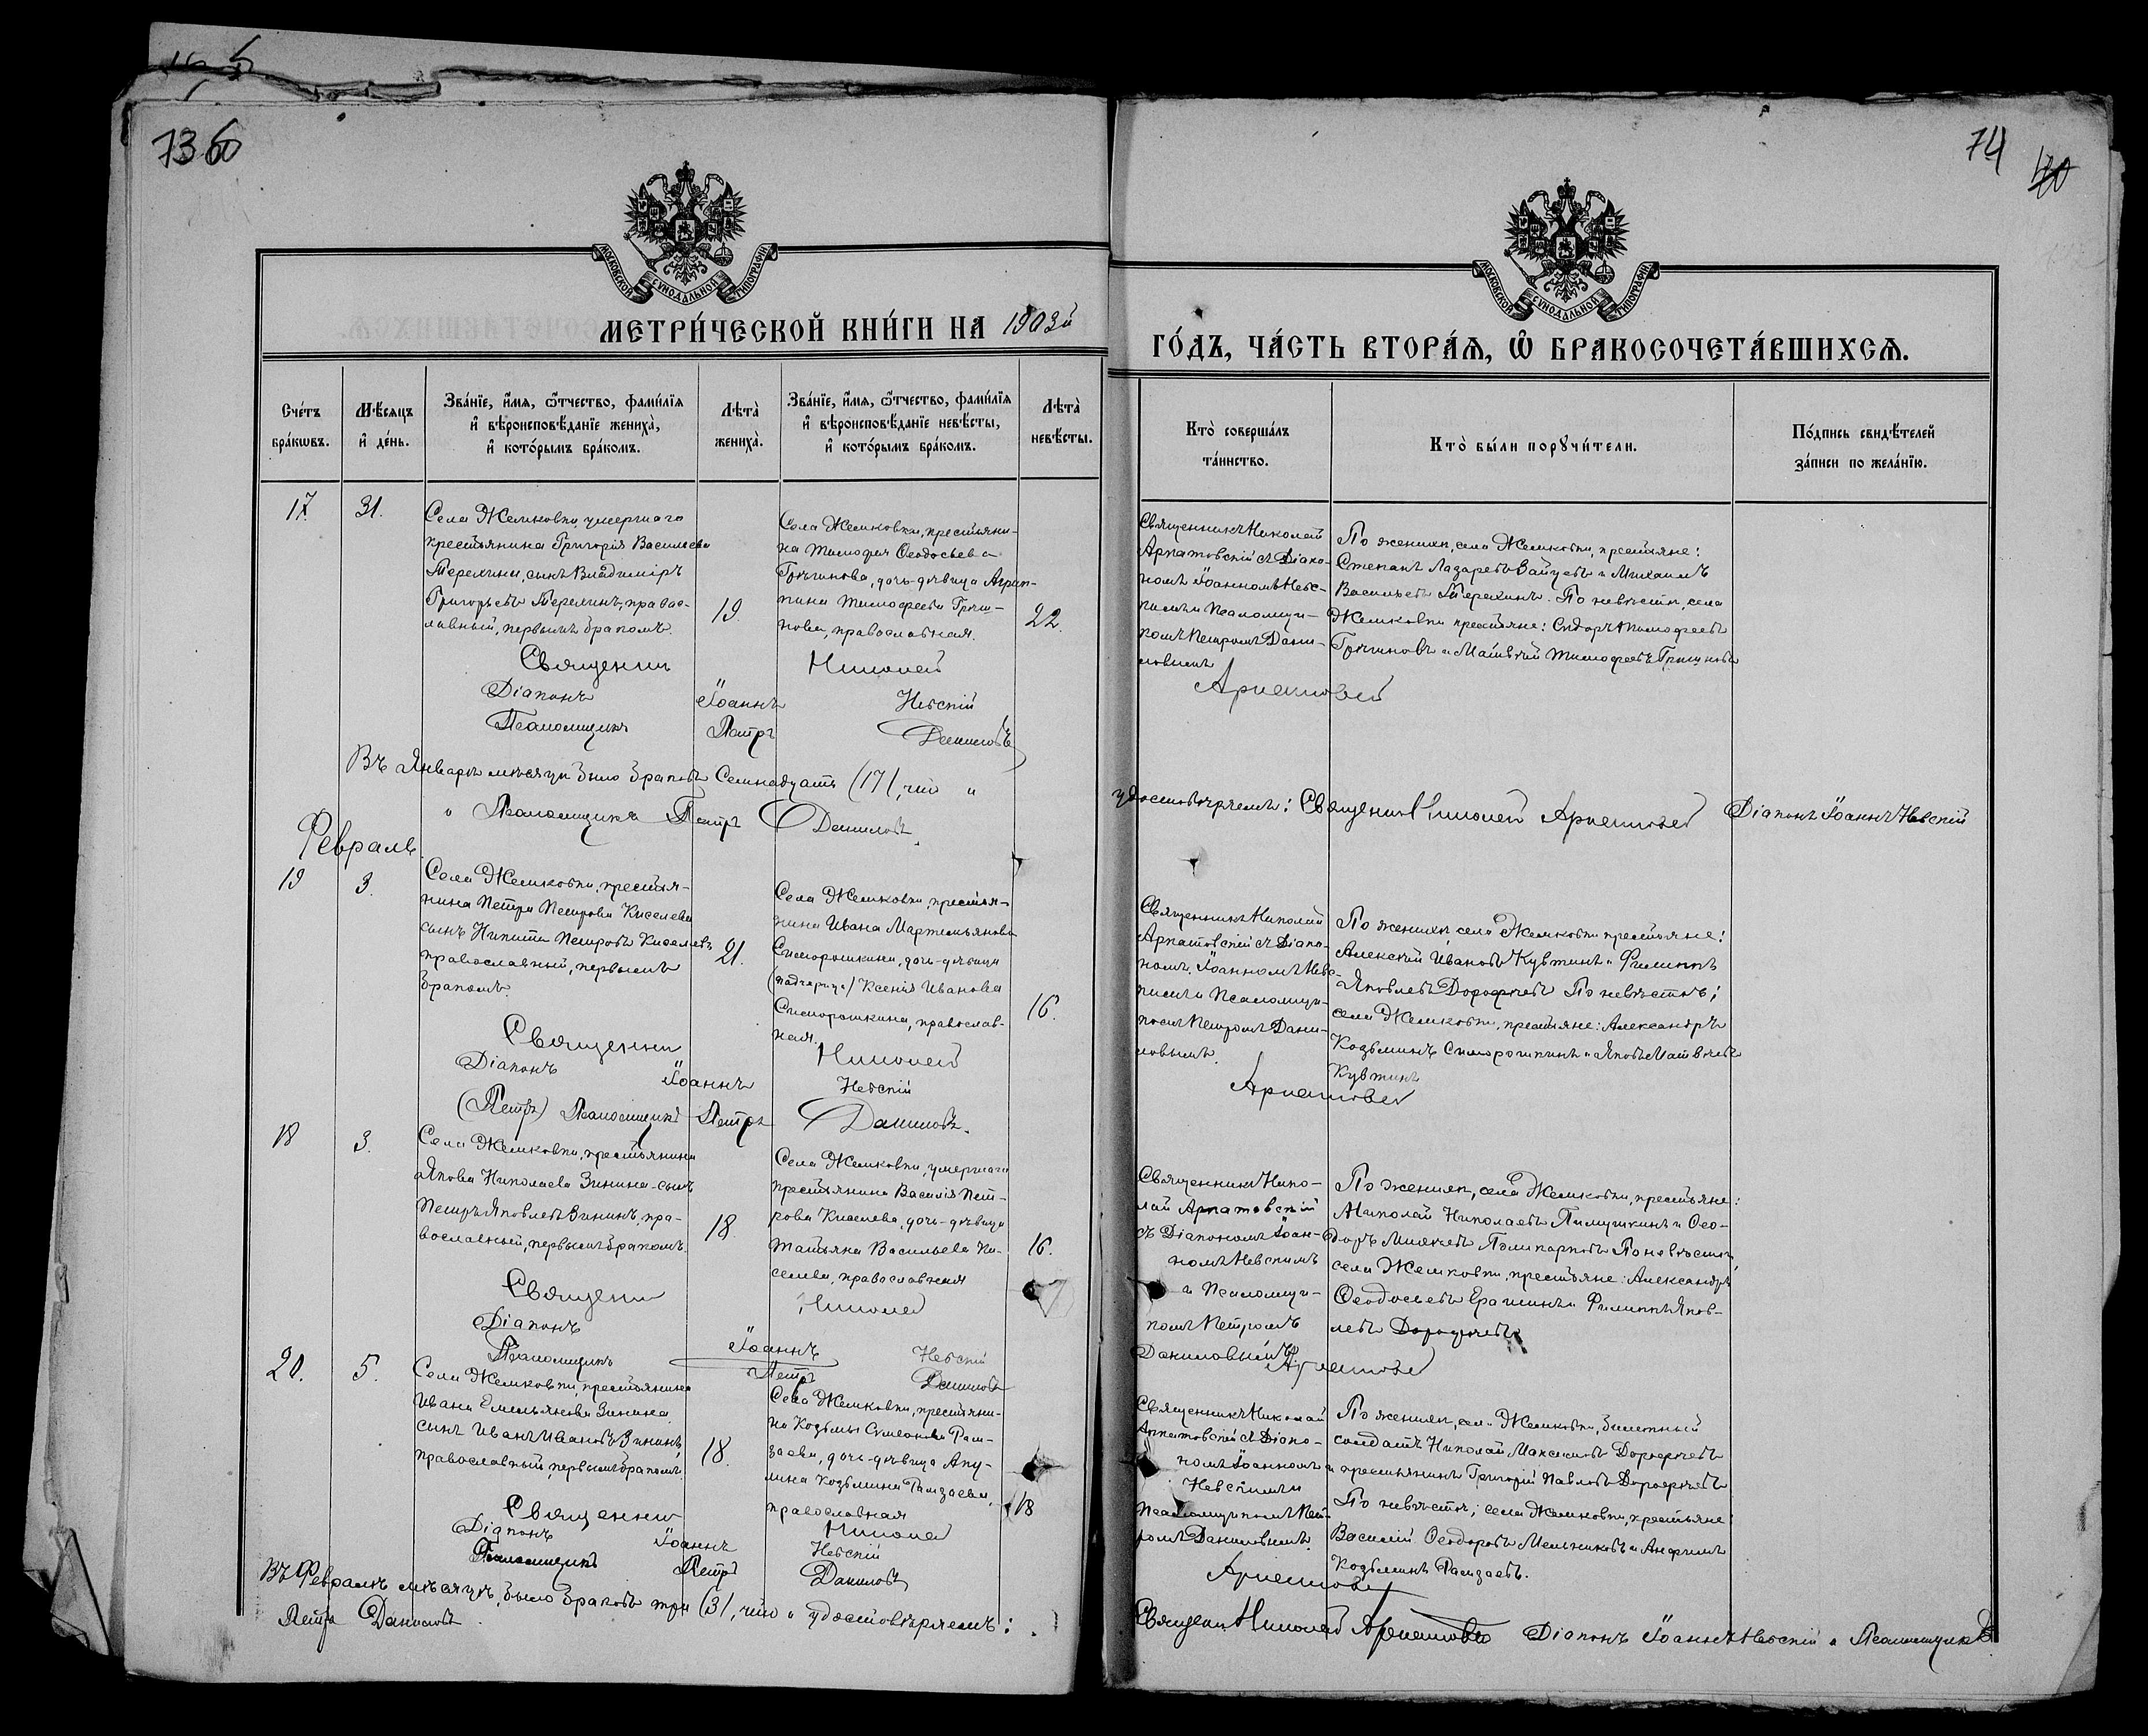 73 об
74
МОСКОВСКОЙ СѴНОДАЛЬНОЙ ТИПОГРАФІИ
МОСКОВСКОЙ СѴНОДАЛЬНОЙ ТИПОГРАФІИ
МЕТРИ́ЧЕСКОЙ КНИ́ГИ НА 1903й
ГО́ДЪ, ЧА́СТЬ ВТОРА́Я, Ѽ БРАКОСОЧЕТА́ВШИХСЯ.
Сче́тъ бра́кѡвъ.
Мѣ́сяцъ и҆ де́нь.
Зва́нїе, и҆́мя, ѻ҆́тчество, фами́лїя
и҆ вѣроисповѣ́данїе жениха̀,
и҆ кото́рымъ бра́комъ.
Лѣта̀ жениха̀.
Зва́нїе, и҆́мя, ѻ҆́тчество, фами́лїя
и҆ вѣроисповѣ́данїе невѣ́сты,
и҆ кото́рымъ бра́комъ.
Лѣта̀ невѣ́сты.
Кто̀ соверша́лъ
та́инство.
Кто̀ бы́ли порꙋчи́тели.
По́дпись свидѣ́телей
за́писи по жела́нїю.
17.
31.
Села Жемковки, умершаго
крестьянина Григорія Васильева
Терехина, сынъ Владиміръ
Григорьевъ Терехинъ, правос-
лавный, первымъ бракомъ.
19.
Села Жемковки, крестьяни-
на Тимофея Ѳеодосьева
дочь-дѣвица Агрип-
пина Тимофеева
православная.
22.
Священникъ Николай
Арнатовскій съ Діако-
номъ Іоанномъ Невс-
кимъ и Псаломщи-
комъ Петромъ Дани-
ловымъ
По женихѣ, села Жемковки, крестьяне:
Степанъ Лазаревъ Зайцевъ и Михаилъ
Васильевъ Терехинъ. По невѣстѣ, села
Жемковки крестьяне: Сидоръ Тимофеевъ
и Матвѣй Тимофеевъ
Священникъ Николай
Діаконъ Іоаннъ Невскій
Псаломщикъ Петръ Даниловъ
Въ Январѣ мѣсяцѣ было браковъ Семнадцать (17), что "
удостовѣряемъ: Священникъ Николай Діаконъ Іоаннъ Невскій
" Псаломщикъ Петръ Даниловъ.
Февраль
19
3.
Села Жемковки, крестья-
нина Петра Петрова Киселева
сынъ Никита Петровъ Киселевъ
православный, первымъ
бракомъ.
21.
Села Жемковки, крестья-
нина Ивана Мартемьянова
Скиморошкина, дочь-дѣвица
(падчерица) Ксенія Иванова
Скиморошкина, православ-
ная.
16.
Священникъ Николай
Арнатовскій съ Діако-
номъ Іоанномъ Невс-
кимъ и Псаломщи-
комъ Петромъ Дани-
ловымъ.
По женихѣ села Жемковки крестьяне:
Алексѣй Ивановъ Кувтинъ и Филиппъ
Яковлевъ Дорофѣевъ По невѣстѣ;
села Жемковки, крестьяне: Александръ
Козьминъ Скиморошкинъ и Яковъ Матвѣевъ
Кувтинъ
Священникъ Николай
Діаконъ Іоаннъ Невскій
(Петръ) Псаломщикъ Петръ Даниловъ.
18
3.
Села Жемковки, крестьянина
Якова Николаева Зинина-сынъ
Петръ Яковлевъ Зининъ, пра-
вославный, первымъ бракомъ.
18.
Села Жемковки, умершаго
крестьянина Василія Пет-
рова Киселева, дочь-дѣвица
Татьяна Васильева Ки-
селева, православная
16.
Священникъ Нико-
лай Арнатовскій
съ Діакономъ Іоан-
номъ Невскимъ
и Псаломщи-
комъ Петромъ
Даниловымъ
По женихѣ, села Жемковки, крестьяне:
Николай Николаевъ и Ѳео-
доръ Поликарповъ По невѣстѣ,
села Жемковки, крестьяне: Александръ
Ѳеодосьевъ и Филиппъ Яков-
левъ Дорофѣевъ
Священникъ Николай
Діаконъ Іоаннъ Невскій
Псаломщикъ Петръ Даниловъ
20.
5.
Села Жемковки, крестьянина
Ивана Емельянова Зинина,
сынъ Иванъ Ивановъ Зининъ,
православный, первымъ бракомъ
18.
Села Жемковки, крестьяни-
на Козьмы Симеонова Рам-
заева, дочь-дѣвица Аку-
лина Козьмина Рамзаева,
православная
18
Священникъ Николай
Арнатовскій съ Діако-
номъ Іоанномъ
Невскимъ и
Псаломщикомъ Пет-
ромъ Даниловымъ.
По женихѣ, села Жемковки, билетный
солдатъ Николай Максимовъ Дорофѣевъ
и крестьянинъ Григорій Павловъ Дорофѣевъ
По невѣстѣ; села Жемковки, крестьяне
Василій Ѳеодоровъ Мельниковъ и Анфимъ
Козьминъ Рамзаевъ.
Священникъ Николай
Діаконъ Іоаннъ Невскій
Псаломщикъ Петръ Даниловъ
Въ Февралѣ мѣсяцѣ, было браковъ три (3), что и удостовѣряемъ:
Священникъ Николай Діаконъ Іоаннъ Невскій и Псаломщикъ
Петръ Даниловъ.